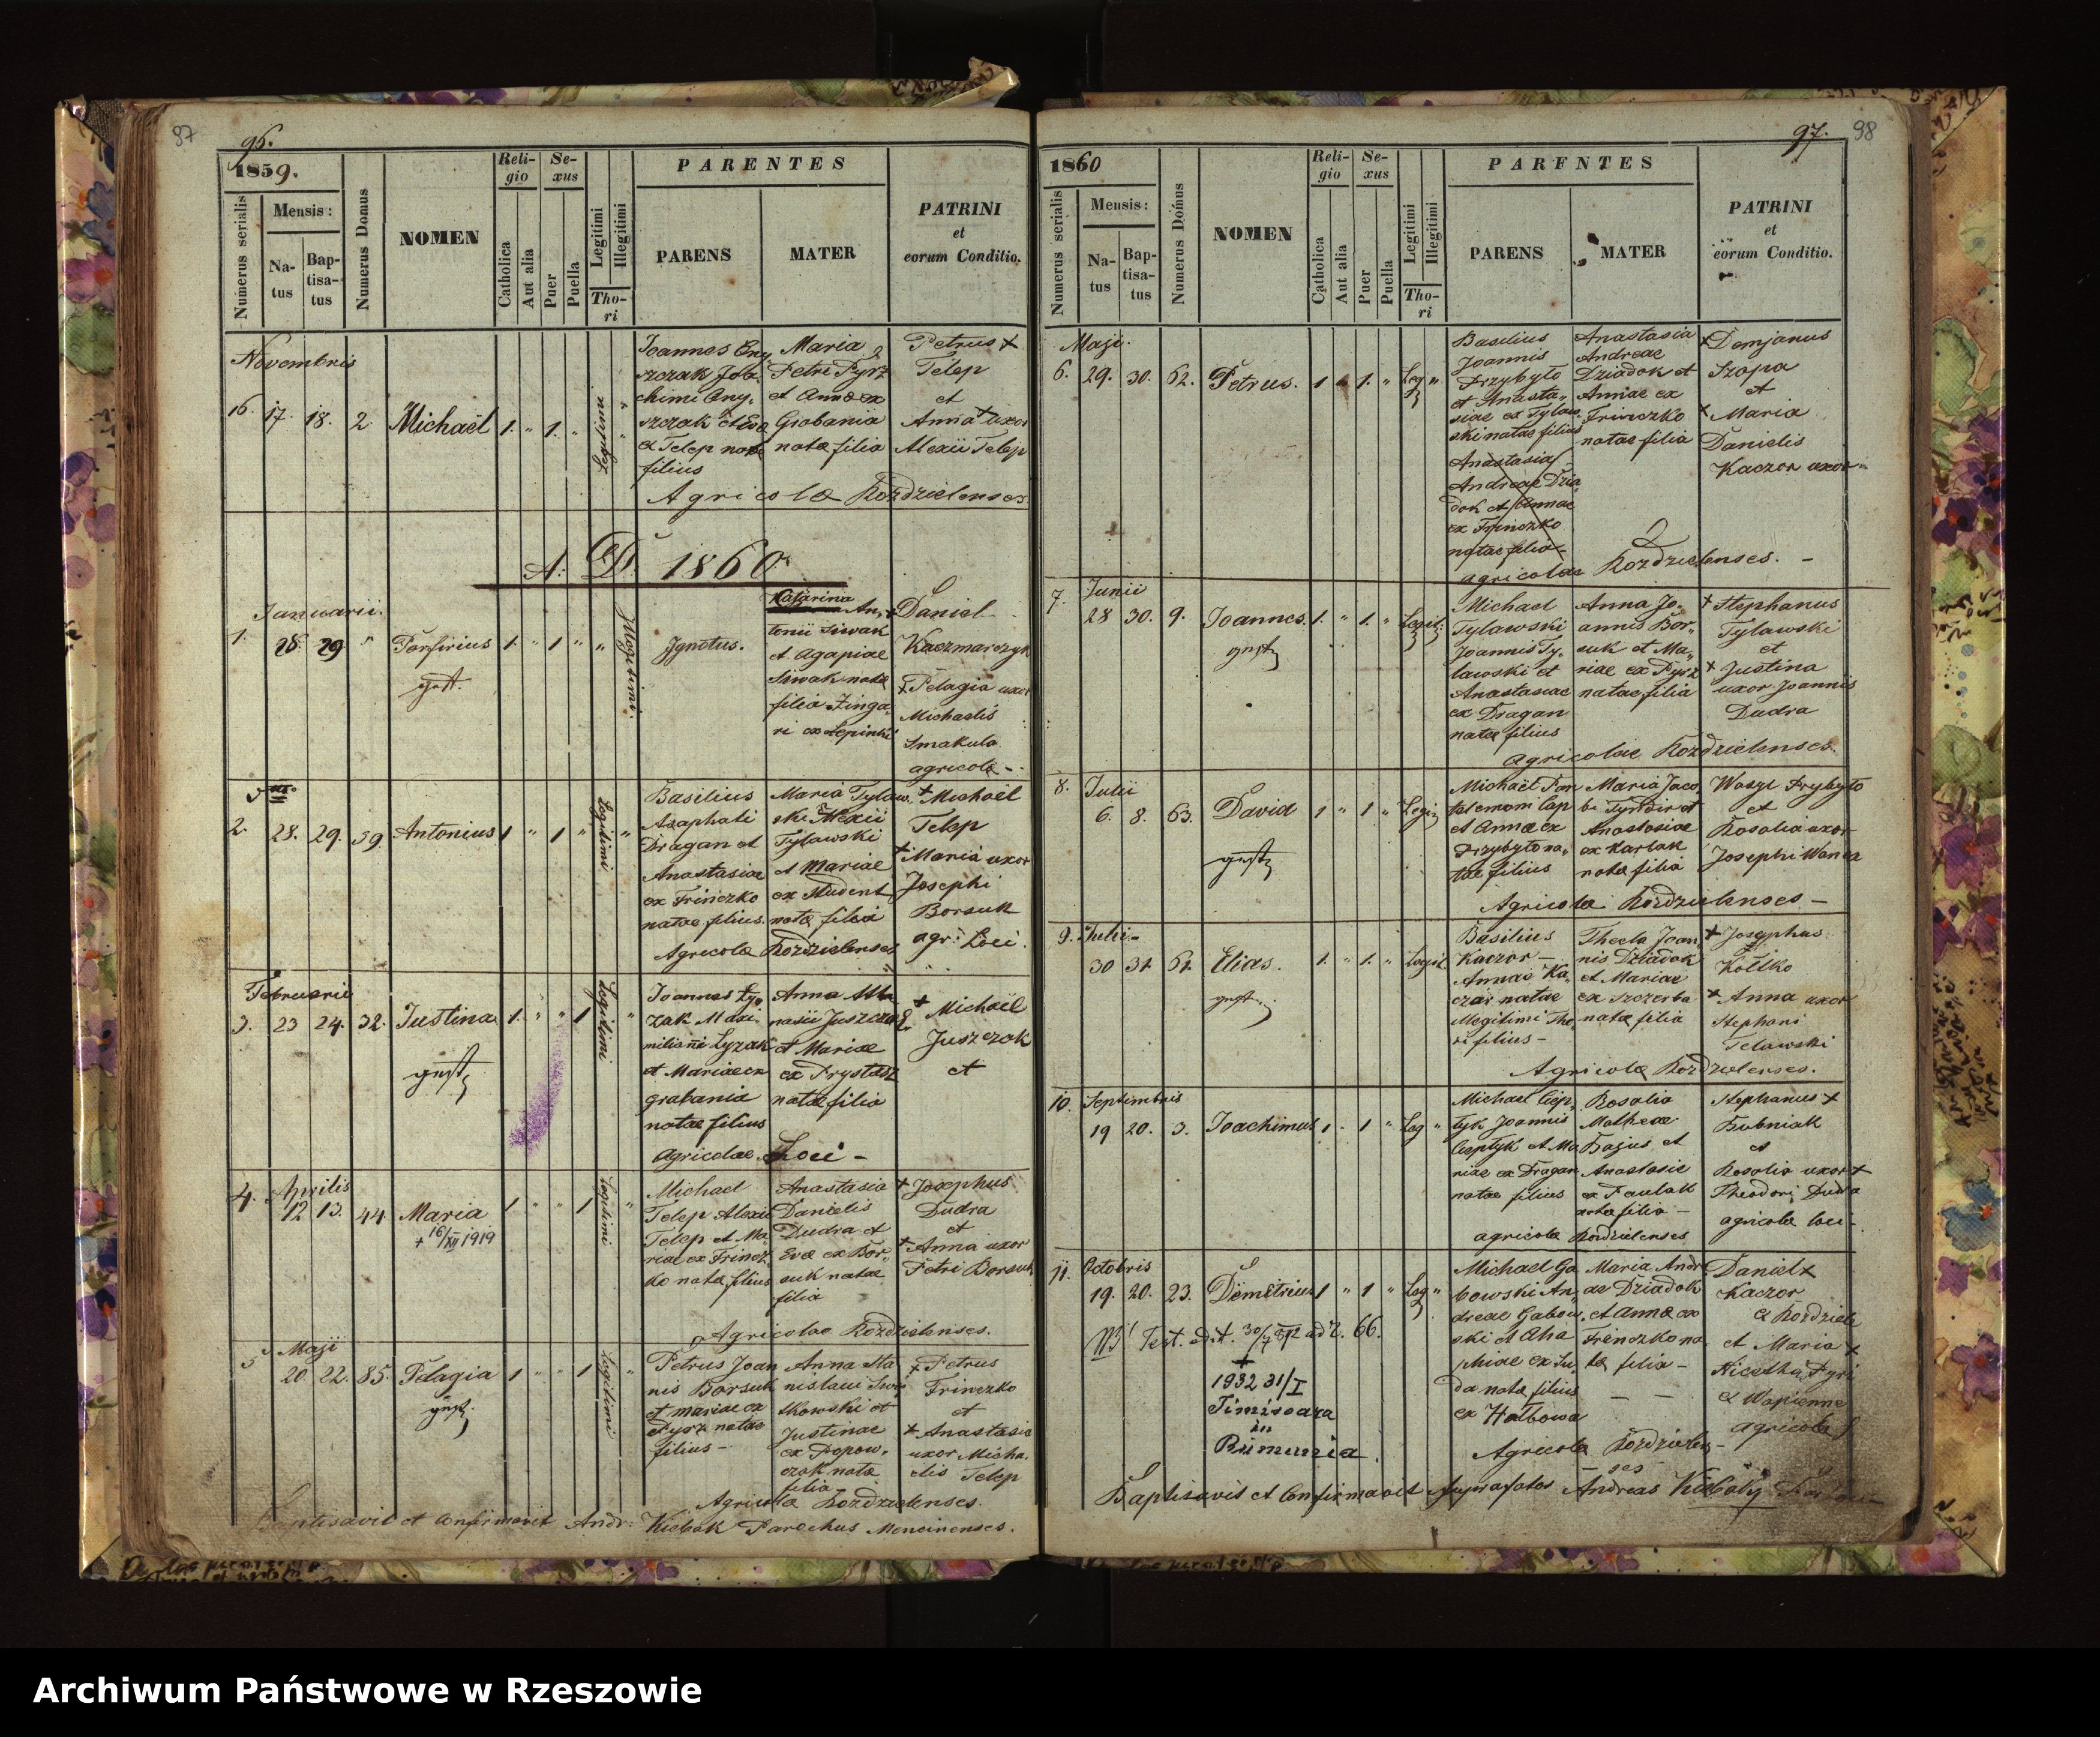 97
96.
1859.
Numerus serialis
Mensis:
Natus
Baptisatus
Numerus Domus
NOMEN
Religio
Catholica
Aut alia
Sexus
Puer
Puella
Legitimi
Illegitimi
Thori
PARENTES
PARENS
MATER
PATRINI
et
eorum Conditio.
Novembris
16. 17. 18. 2. Michaël 1. " 1. "
Legitimi
Joannes
filius
Maria
Petri Pyrz
et Annae ex
Grabania
natae filia
Petrus +
Telep
et
Anna + uxor
Alexii Telep
Agricolae Rozdzielenses
A: D: 1860
Januarii.
1. 28. 29. " Porfirius 1. " 1 " "
gest.
Illegitimi.
Ignotus.
Katarina An,
tonii Siwak
et Agapiae
Siwak natae
filia Zinga
ri ex Lepinki
+ Daniel
Kaczmarczyk
+ Pelagia uxor
Michaelis
Smakula
agricolae -
2. 28. 29. 39. Antonius 1 " 1 "
Legitimi
Basilius
Asaphati
Dragan et
Anastasiae
ex Frinczko
natae filius.
Maria Tylaw,
ski Alexii
Tylawski
et Mariae
ex Student
natae filia
+ Michaël
Telep
+ Maria uxor
Josephi
Borsuk
agr: Loci.
Agricolae Rozdzielenses
Februarii
3. 23 24. 32. Justina 1. " " 1
Legitimi
Joannes Ly,
zak Maxi.
miliani Lyzak
et Mariae ex
grabania
natae filius
Anna Atha
nasii Juszczak
et Mariae
ex Prystasz
natae filia
+ Michaël
Juszczak
et
Agricolae Loci -
4. Aprilis
12 13. 44 Maria 1 " " 1
+ 16/XII 1919
Legitimi
Michael
Telep Alexii
Telep et Ma,
riae ex Frincz
ko natae filius
Anastasia
Danielis
Dudra et
Evae ex Bor,
suk natae
filia
+ Josephus
Dudra
et
+ Anna uxor
Petri Borsuk
Agricolae Rozdzielenses.
5 Maji
20 22. 85. Pelagia 1 " " 1
Legitimi
Petrus Joan
nis Borsuk
et mariae ex
Pyrz natae
filius -
Anna Sta
nislaui
tkowski et
Justinae
ex Popow,
czak natae
filia -
+ Petrus
Frinczko
et
+ Anastasia
uxor Micha,
elis Telep
Agricolae Rozdzielenses.
Baptisavit et Confirmavit Andr: Parochus Mencinenses.
97. 98
1860
Numerus serialis
Mensis:
Natus
Baptisatus
Numerus Domus
NOMEN
Religio
Catholica
Aut alia
Sexus
Puer
Puella
Legitimi
Illegitimi
Thori
PARENTES
PARENS
MATER
PATRINI
et
eorum Conditio.
Maji.
6. 29. 30. 62. Petrus. 1 " 1. " Leg "
Basilius
Joannis
Przybyto
et Anasta,
siae ex Tylaw
ski natae filius
Anastasia
Andreae Dzia,
dok et Annae
ex Frinczko
natae filia
Anastasia
Andreae
Dziadok et
Annae ex
Frinczko
natae filia
+ Demjanus
Szopa
et
+ Maria
Danielis
Kaczor uxor
agricolae Rozdzielenses. -
7. Junii
28 30. 9. Joannes. 1. " 1. " Legit.
Michael
Tylawski
Joannis Ty,
lawski et
Anastasiae
ex Dragan
natae filius
Anna Jo,
annis Bor,
suk et Ma,
riae ex Pyrz
natae filia
+ Stephanus
Tylawski
et
+ Justina
uxor Joannis
Dudra
agricolae Rozdzielenses
8. Julii
6. 8. 63. David 1 " 1 " Legi
Michaël Pan
talemom Cap
et Annae ex
Przybyto na,
tae filius
Maria Jaco,
bi et
Anastasiae
ex Karlak
natae filia
Wasyl Prybyto
et
Rosalia uxor
Josephi Wanca
Agricolae Rozdzielenses -
9. Julii -
30 31. 61. Elias. 1. " 1. " Legit.
Basilius
Kaczor -
Annae Ka,
czor natae
illegitimi Tho,
ri filius -
Thecla Joan,
nis Dziadok
et Mariae
ex Szczerba
natae filia
+ Josephus
Kottko
+ Anna uxor
Stephani
Telawski
Agricolae Rozdzielenses.
10. Septembris
19 20. 3. Joachimus 1 " 1 " Leg "
Michael Cep,
tyk Joannis
Ceptyk et Ma
riae ex Dragan
natae filius
Rosalia
Matheae
Hajus et
Anastasie
ex Paulak
natae filia -
Stephanus +
Bubniak
et
Rosalia uxor +
Theodori Dudra
agricolae loci -
agricolae Rozdzielenses
11. Octobris
19. 20. 23. Demetrius 1 " 1 " Leg "
NB! Test. edit. 30/7 912 ad N. 66.
+
1932 31/I
Timisoara
in
Rumunia.
Michael Ga
bowski An,
dreae Gabow,
ski et Aha
phiae ex Du
da natae filius
ex Hatbowa
Maria Andre
ae Dziadok
et Annae ex
Frinczko na
tae filia -
Daniel +
Kaczor
e Rozdziele
et Maria +
Nicetha Pyrz
e Wapienne
agricolae
Agricolae Rozdzielen-
ses -
Baptisavit et Confirmavit suprafatos Andreas
Archiwum Państwowe w Rzeszowie